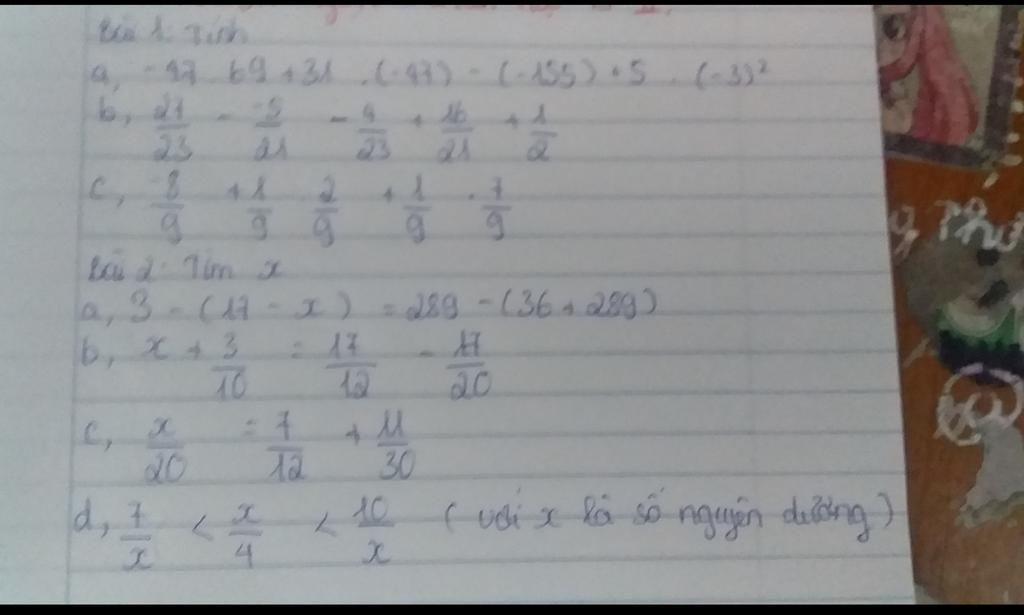 Bài 1: Tính
a, -47 . 69 + 31 . (-47) - (-155) + 5 . (-3)²
b, 27/23 - -5/21 - 4/23 + 16/21 + 1/2
c, -8/9 + 1/9 . 2/9 + 1/9 . 7/9
Bài 2: Tìm x
a, 3 - (17 - x) = 289 - (36 + 289)
b, x + 3/10 = 17/12 - 17/20
c, x/20 = 7/12 + 11/30
d, 7/x < x/4 < 10/x (với x là số nguyên dương)
Thư